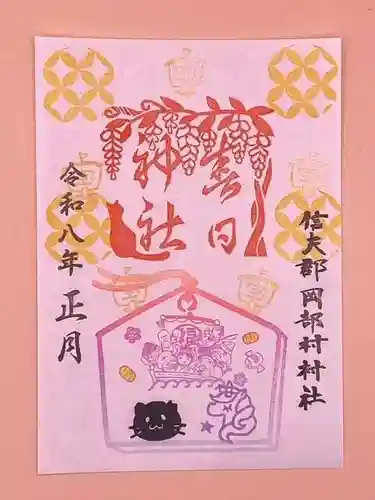 信夫郡岡部村村社
春日
神社
令和八年 正月